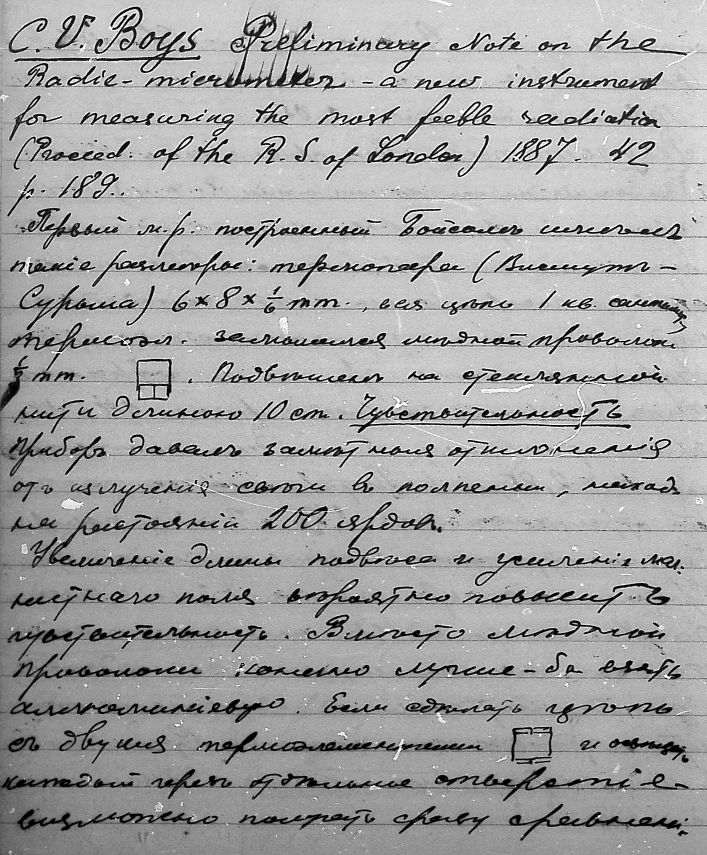 C. V. Boys Preliminary Note on the
Radio-micrometer - a new instrument
for measuring the most feeble radiation
(Proceed. of the R. S. of London) 1887. 42
p. 189.
Первый м.р. построенный Бойсомъ имѣлъ
такіе размѣры: термопара (Висмутъ-
Сурьма) 6 × 8 × 1/6 mm., вся цѣпь 1 кв. сантим.
термоэл. замыкался мѣдной проволокой
1/3 mm. . Подвѣшенъ на стеклянной
нити длиною 10 cm. Чувствительность
приборъ давалъ замѣтныя отклоненія
отъ излученія свѣчи въ полпенни, находя
на разстояніи 200 ярдовъ.
Увеличеніе длины подвѣса и усиленіе маг.
нитнаго поля вѣроятно повыситъ
чувствительность. Вмѣсто мѣдной
проволоки конечно лучше-бы взять
алюминіевую. Если сдѣлать цѣпь
съ двумя термоэлементами и освѣщать
каждый черезъ отдѣльное отверстіе-
возможно получать сразу сравнені.